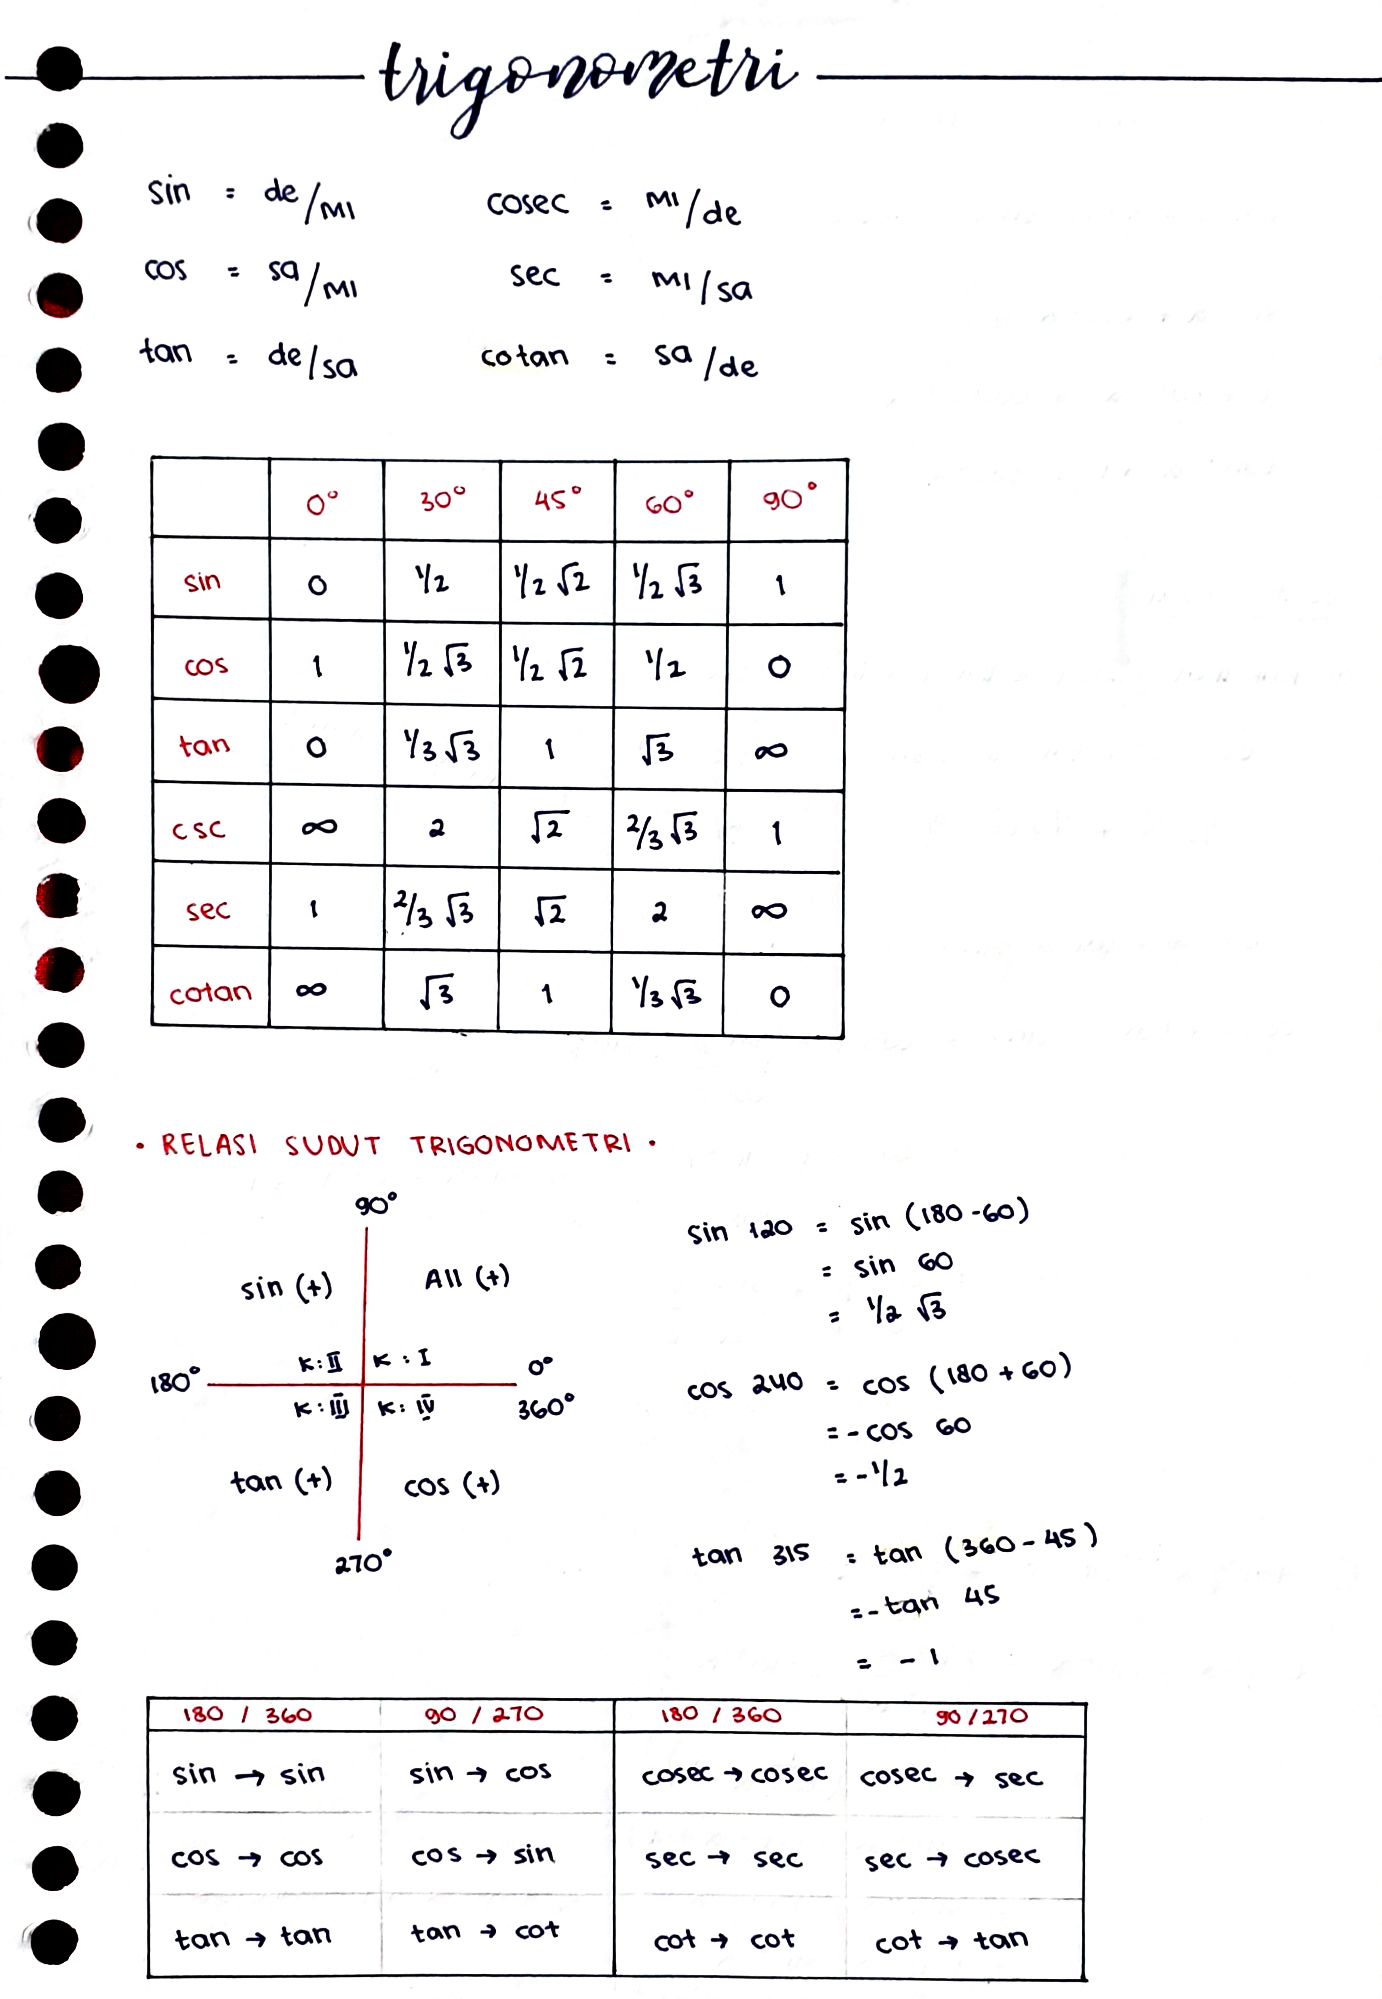 trigonometri
sin = de/MI cosec = MI/de
cos = sa/MI sec = MI/sa
tan = de/sa cotan = sa/de
0° 30° 45° 60° 90°
sin 0 1/2 1/2 √2 1/2 √3 1
cos 1 1/2 √3 1/2 √2 1/2 0
tan 0 1/3 √3 1 √3 ∞
csc ∞ 2 √2 2/3 √3 1
sec 1 2/3 √3 √2 2 ∞
cotan ∞ √3 1 1/3 √3 0
• RELASI SUDUT TRIGONOMETRI •
90°
sin (+) All (+)
K : II K : I
180° 0°
360°
K : III K : IV
tan (+) cos (+)
270°
sin 120 = sin (180 - 60)
= sin 60
= 1/2 √3
cos 240 = cos (180 + 60)
= - cos 60
= - 1/2
tan 315 = tan (360 - 45)
= - tan 45
= - 1
180 / 360 90 / 270 180 / 360 90 / 270
sin → sin sin → cos cosec → cosec cosec → sec
cos → cos cos → sin sec → sec sec → cosec
tan → tan tan → cot cot → cot cot → tan